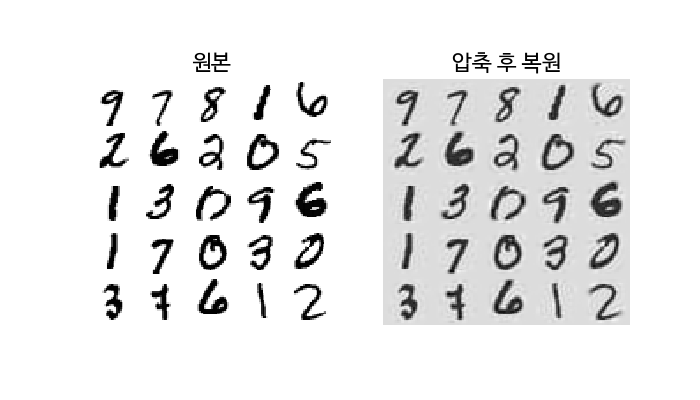 원본
9 7 8 1 6
2 6 2 0 5
1 3 0 9 6
1 7 0 3 0
3 7 6 1 2
압축 후 복원
9 7 8 1 6
2 6 2 0 5
1 3 0 9 6
1 7 0 3 0
3 7 6 1 2